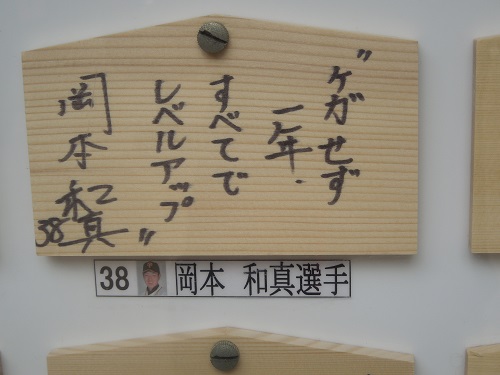 "ケガせず
一年.
すべてで
レベルアップ"
岡本和真
38
38 岡本 和真選手